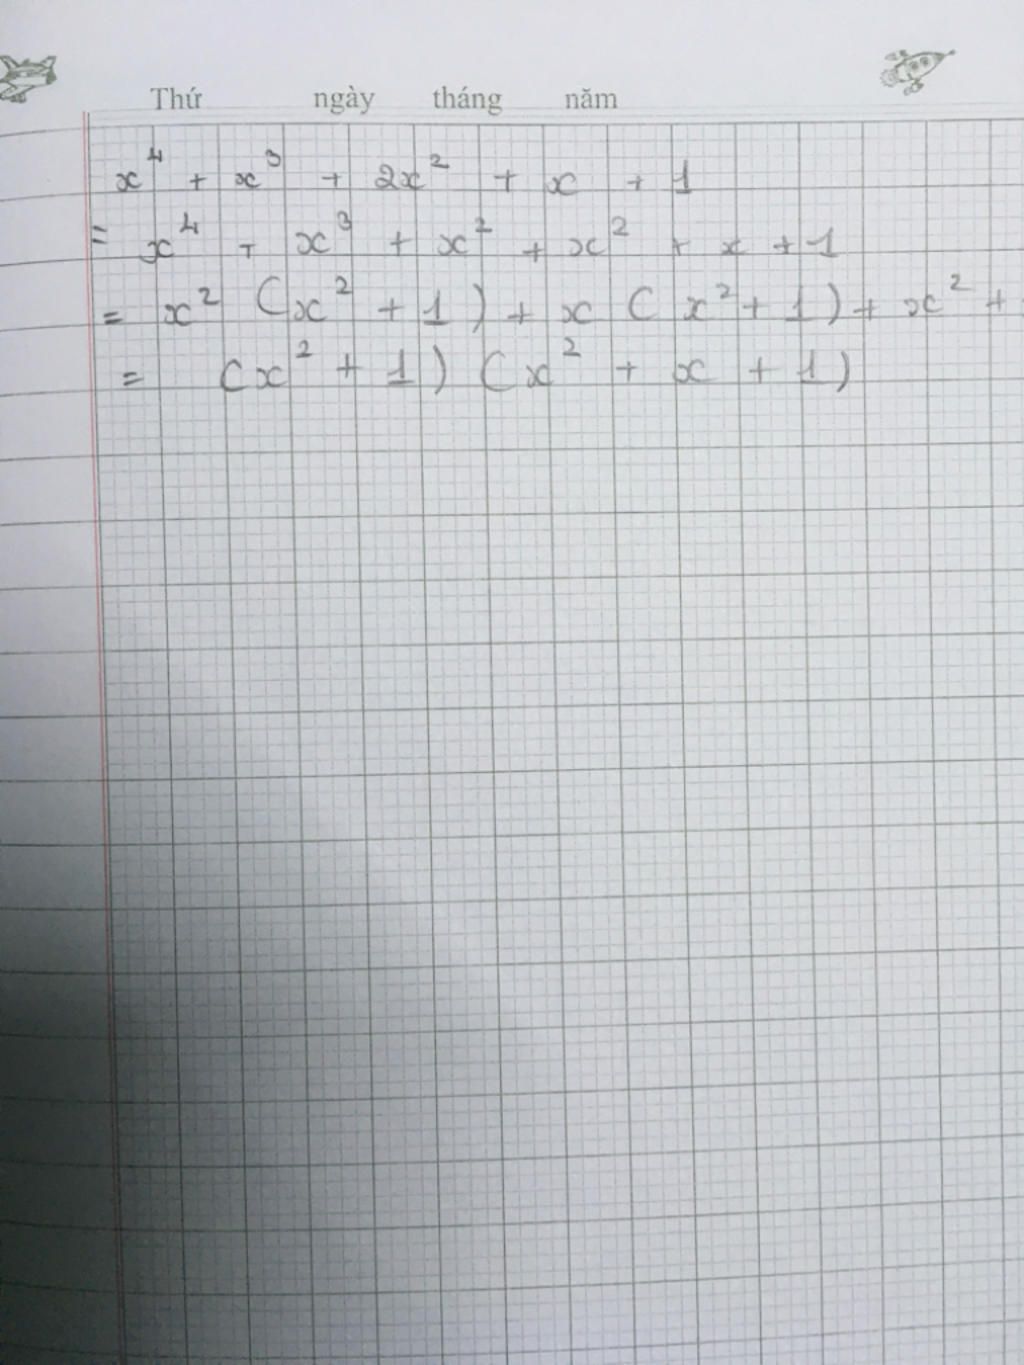 Thứ ngày tháng năm
x⁴ + x³ + 2x² + x + 1
= x⁴ + x³ + x² + x² + x + 1
= x² (x² + 1) + x (x² + 1) + x² +
= (x² + 1) (x² + x + 1)